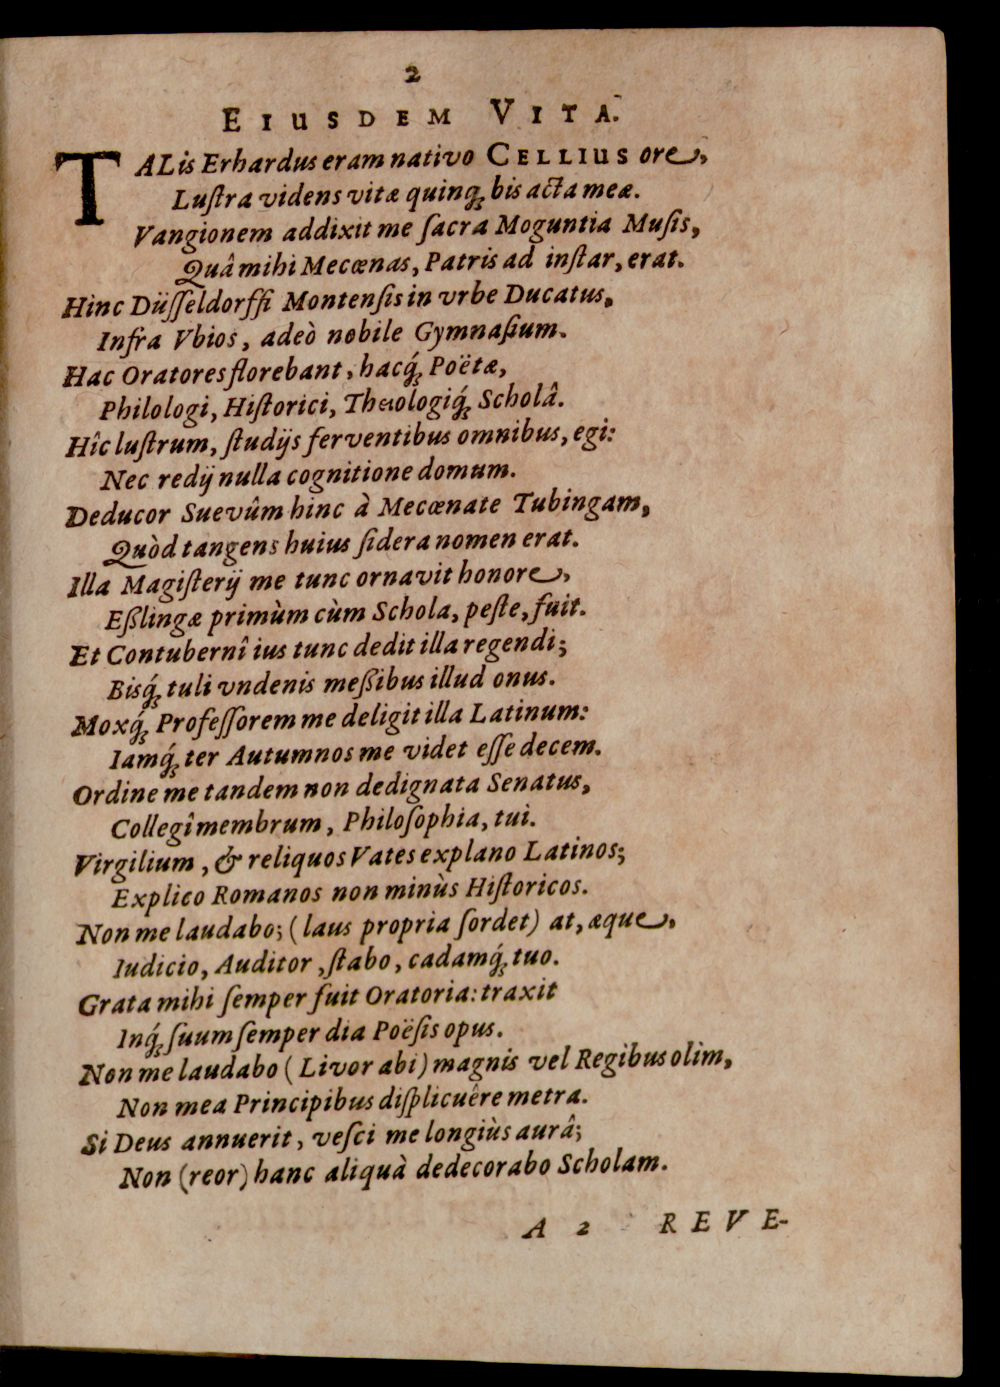 2
EIUSDEM VITA.
TALis Erhardus eram nativo CELLIUS ore,
Luſtra videns vitæ quinq; bis acta meæ.
Vangionem addixit me ſacra Moguntia Muſis,
Quâ mihi Mecœnas, Patris ad inſtar, erat.
Hinc Düſſeldorffi Montenſis in vrbe Ducatus,
Infra Vbios, adeò nobile Gymnaſium.
Hac Oratores florebant, hacq́; Poëtæ,
Philologi, Hiſtorici, Theologiq́; Scholâ.
Hîc luſtrum, ſtudijs ferventibus omnibus, egi:
Nec redij nulla cognitione domum.
Deducor Suevûm hinc à Mecœnate Tubingam,
Quòd tangens huius ſidera nomen erat.
Illa Magiſterij me tunc ornavit honore,
Eßlingæ primùm cùm Schola, peſte, fuit.
Et Contubernî ius tunc dedit illa regendi;
Bisq́; tuli vndenis meßibus illud onus.
Moxq́; Profeſſorem me deligit illa Latinum:
Iamq́; ter Autumnos me videt eſſe decem.
Ordine me tandem non dedignata Senatus,
Collegî membrum, Philoſophia, tui.
Virgilium, & reliquos Vates explano Latinos;
Explico Romanos non minùs Hiſtoricos.
Non me laudabo; (laus propria ſordet) at, æque,
Iudicio, Auditor, ſtabo, cadamq́; tuo.
Grata mihi ſemper fuit Oratoria: traxit
Inq́; ſuum ſemper dia Poëſis opus.
Non me laudabo (Livor abi) magnis vel Regibus olim,
Non mea Principibus diſplicuêre metra.
Si Deus annuerit, veſci me longiùs aurâ;
Non (reor) hanc aliquà dedecorabo Scholam.
A 2 REVE-